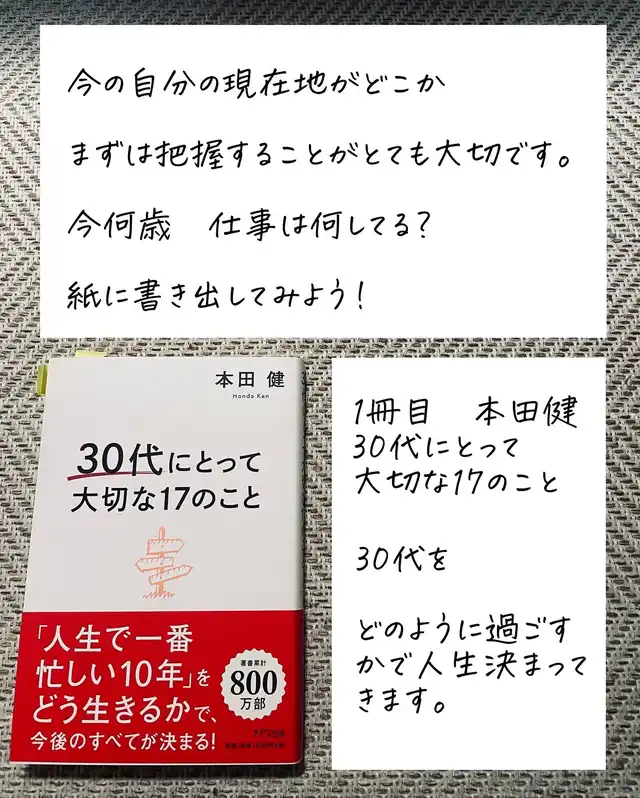 今の自分の現在地がどこか
まずは把握することがとても大切です。
今何歳　仕事は何してる?
紙に書き出してみよう!
本田 健
Honda Ken
30代にとって
大切な17のこと
「人生で一番
忙しい10年」を
どう生きるかで、
今後のすべてが決まる!
著書累計
800
万部
1冊目　本田健
30代にとって
大切な17のこと
30代を
どのように過ごす
かで人生決まって
きます。